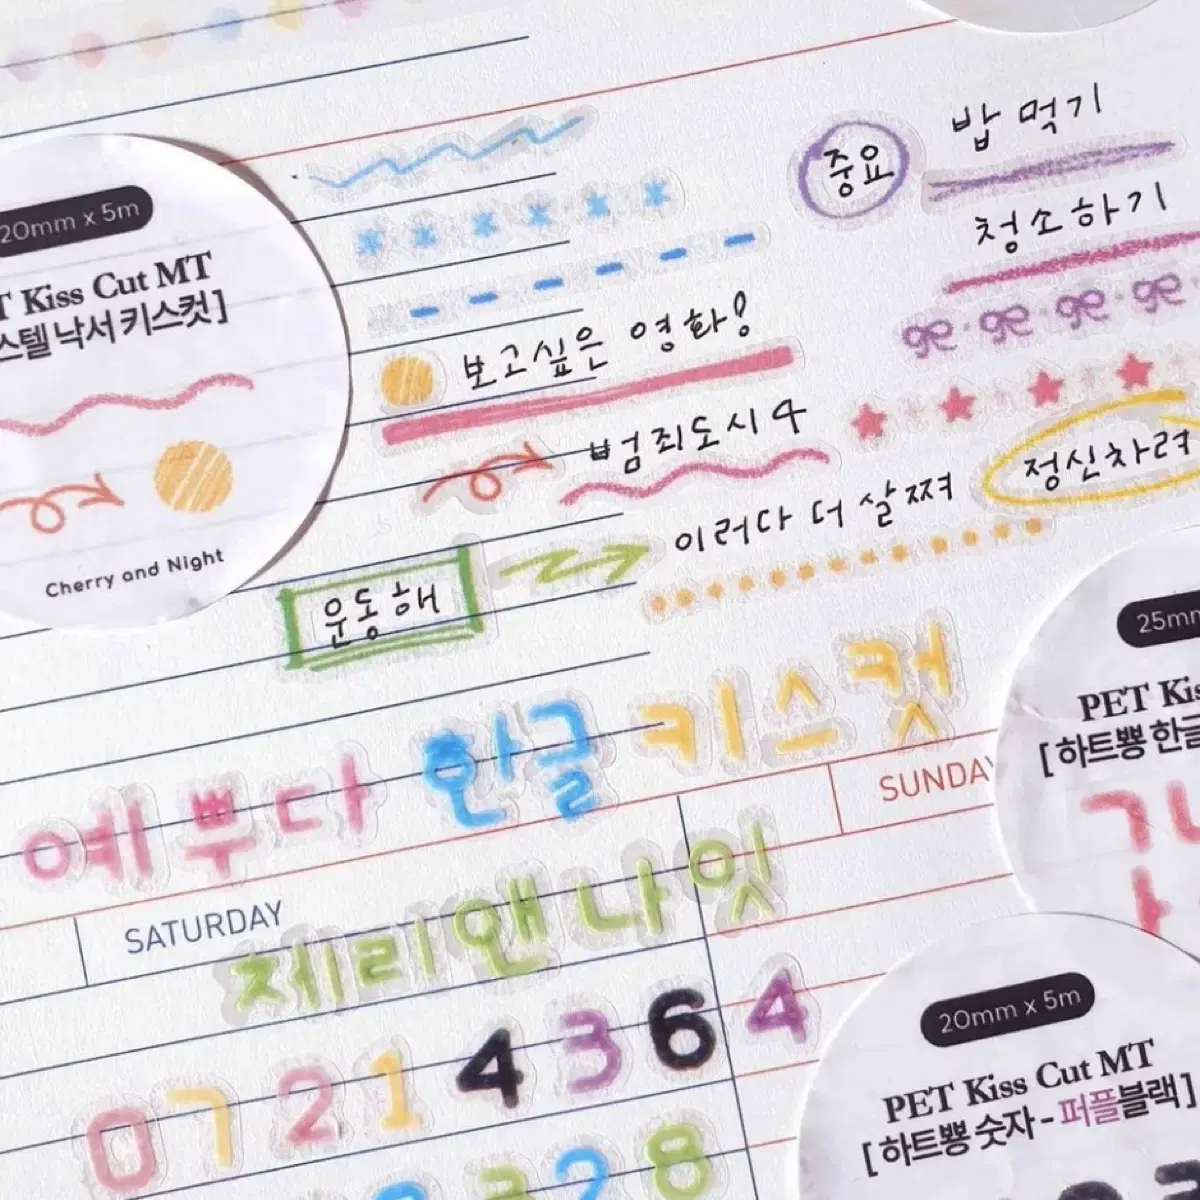 20mm x 5m
Kiss Cut MT
낙서 키스컷 ]
Cherry and Night
중요
밥 먹기
청소하기
보고싶은 영화!
범죄도시 4
정신차려
이러다 더 살쪄
운동해
예쁘다 한글 키스컷
SUNDAY
SATURDAY
체리앤나잇
0 7 2 1 4 3 6 4
2 8
PET
[ 하트뿅 한글
ㄱ ㄴ
ㅏ
20mm x 5m
PET Kiss Cut MT
[ 하트뿅 숫자 - 퍼플블랙 ]